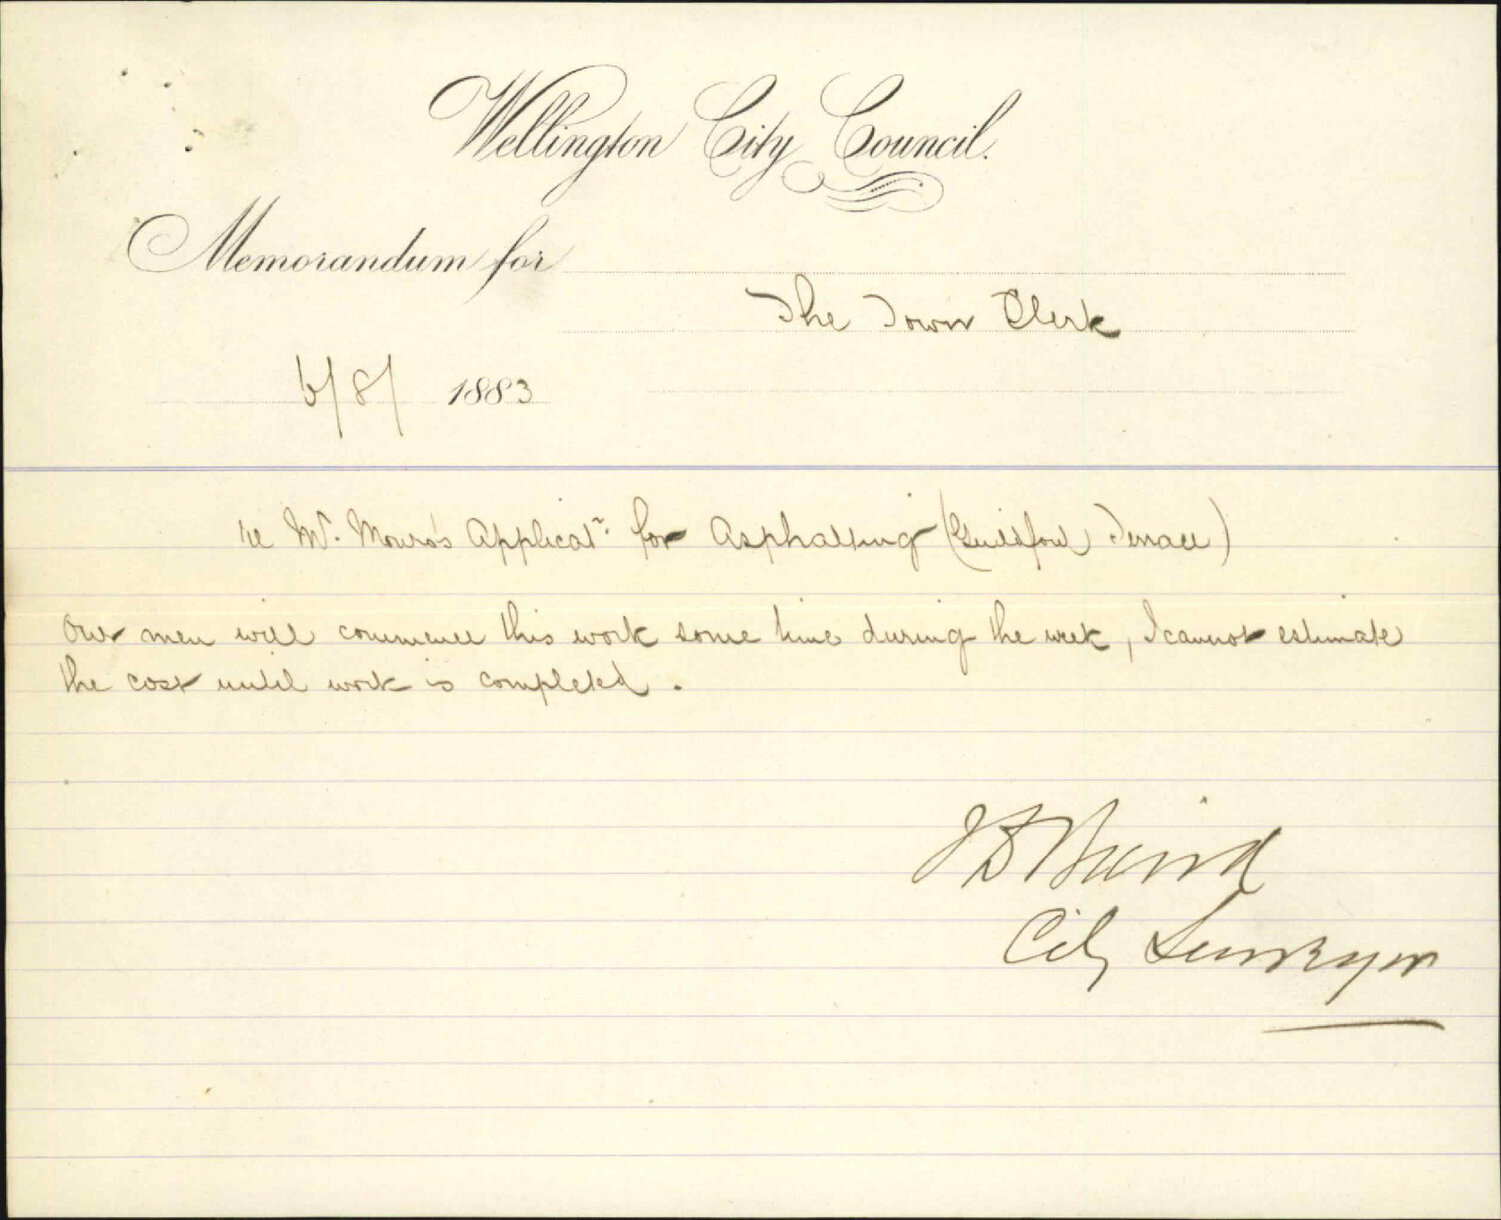 Wellington City Council.
Memorandum for
The Town Clerk
6/8/ 1883
re Mr. Monro's Applicatn. for Asphalting (Guildford Terrace)
Our men will commence this work some time during the week, I cannot estimate
the cost until work is completed.
J D Baird
City Surveyor